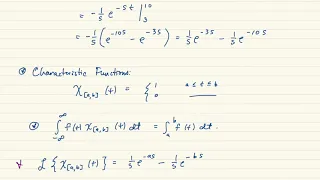 = -1/5 e^{-st} |_3^{10}
= -1/5 (e^{-10s} - e^{-3s}) = 1/5 e^{-3s} - 1/5 e^{-10s}
Characteristic Functions:
χ_{[a,b]}(t) = { 1 a ≤ t ≤ b
0
∫_{-∞}^{∞} f(t) χ_{[a,b]}(t) dt = ∫_a^b f(t) dt.
ℒ{χ_{[a,b]}(t)} = 1/5 e^{-as} - 1/5 e^{-bs}